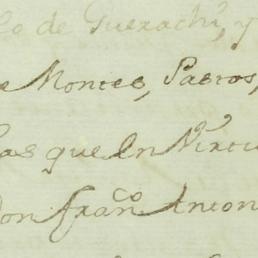 lo de Guerachi, y
e Montes, Pastos,
las que en Virtu
Don fran.co Anton